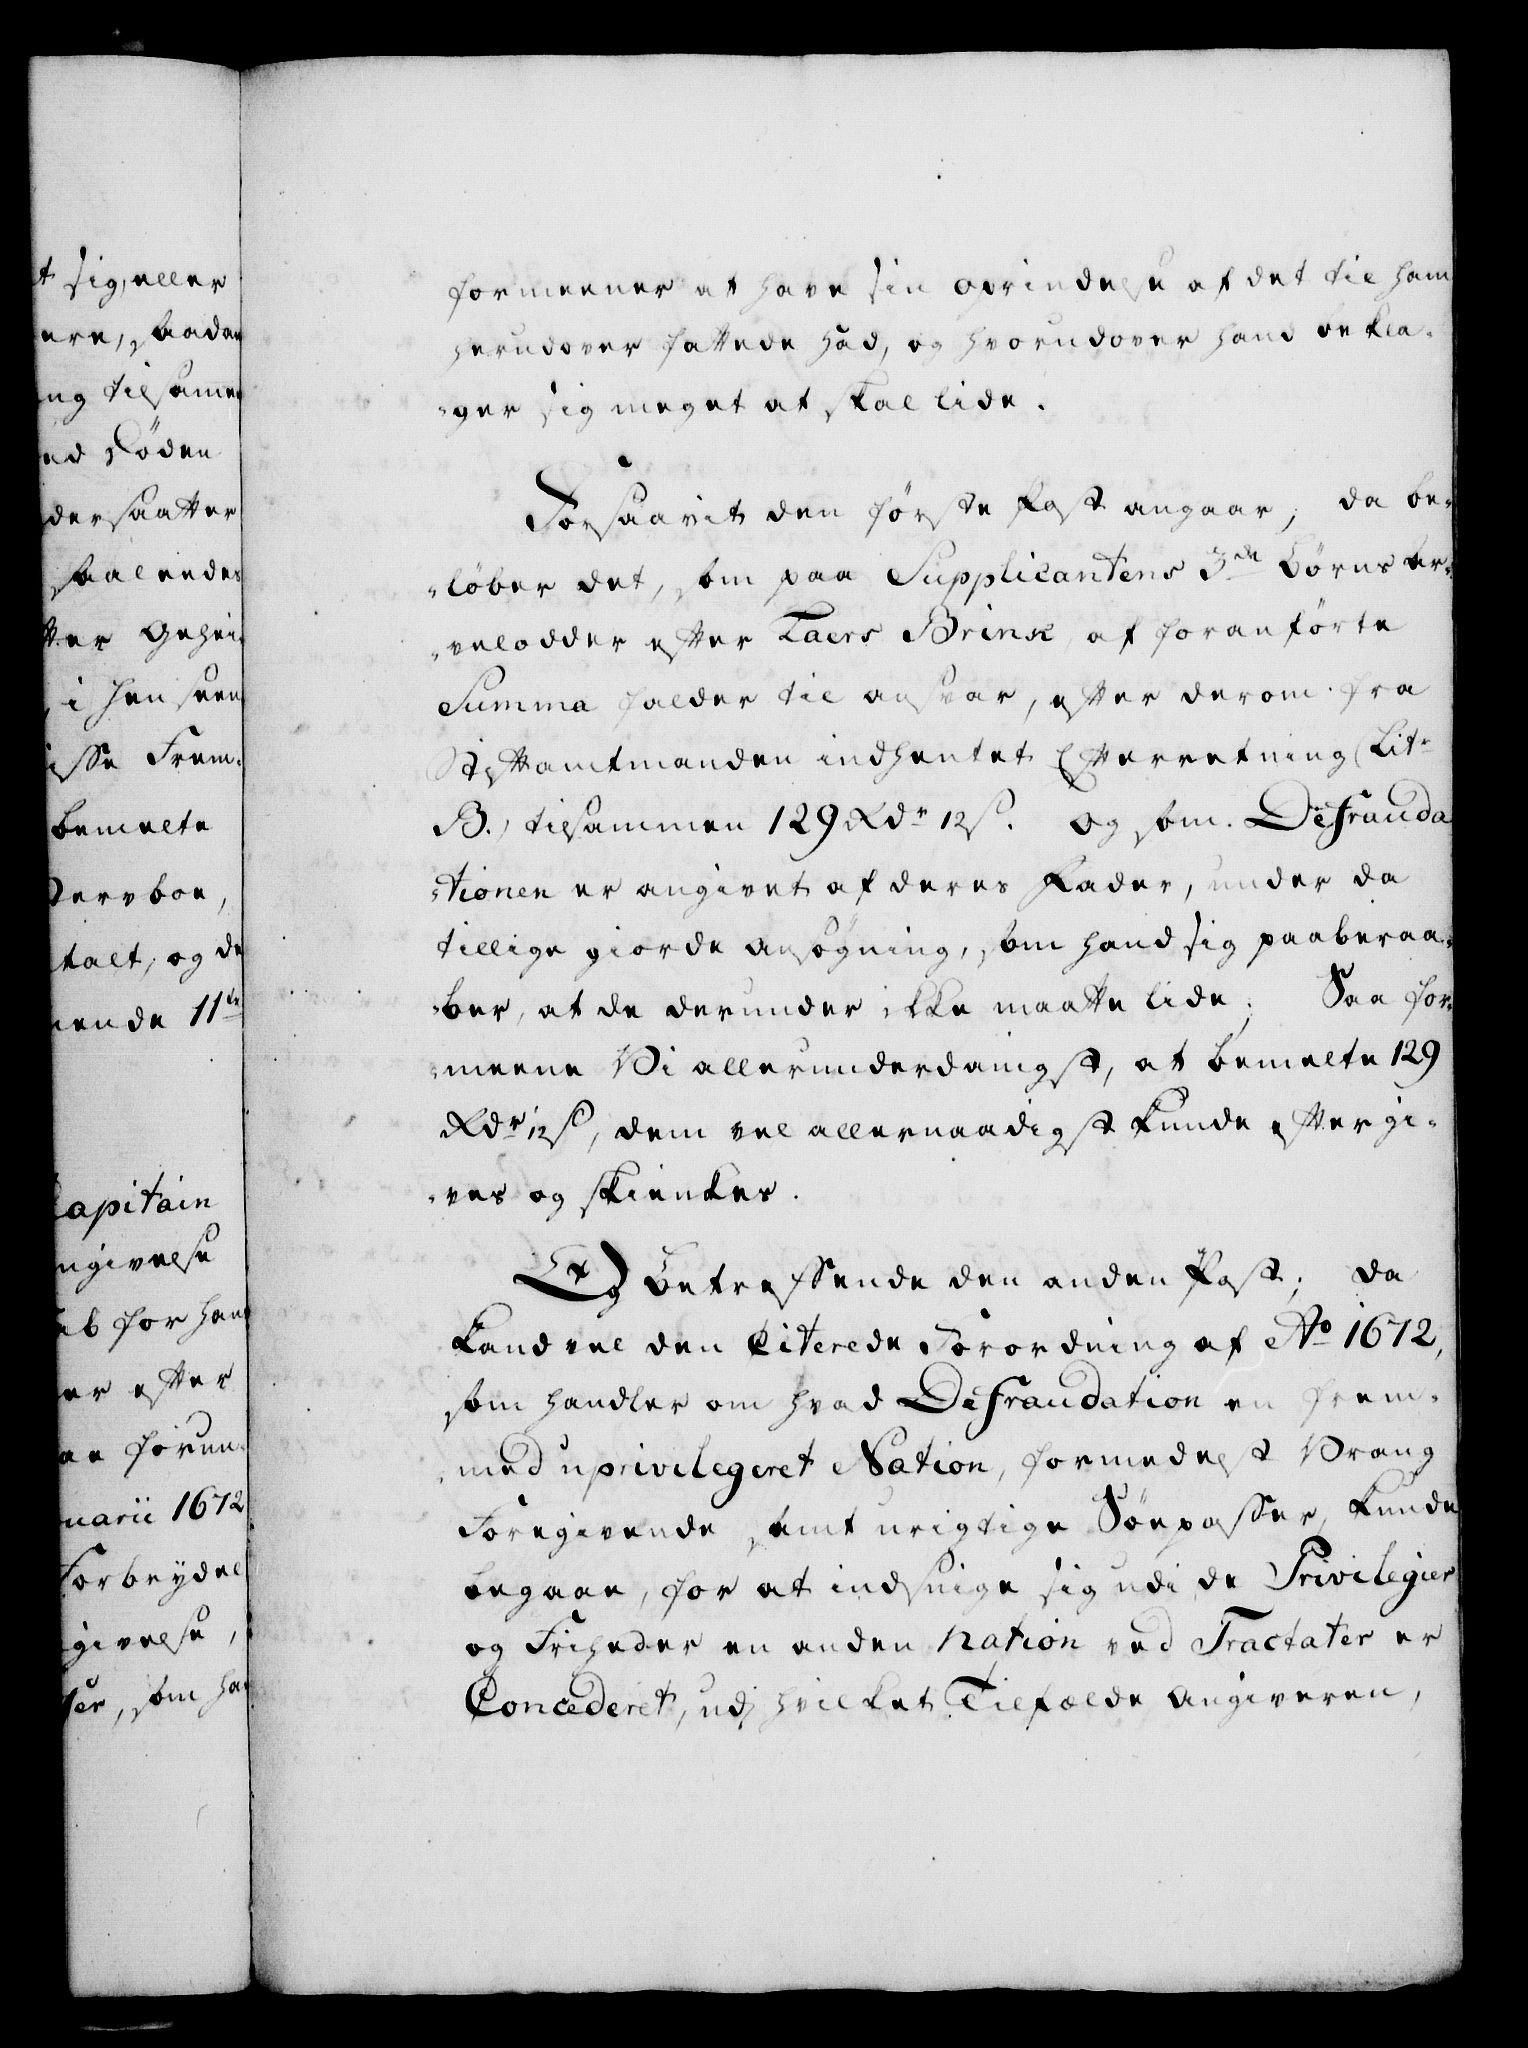 t sig, eller
ere, saadan
ng tilsamen
ed Döden
dersaatter
saaleedes
tter Gehei-
, i henseen
isse Frem-
bemelte
Stervboe,
talt, og de
ende 11te
Capitain
ngivelse
ab for han
er efter
an forun-
nuarii 1672
Forbrydel
givelse,
ser, som ha
formeener at have sin oprindelse af det til ham
herudover fattede had, og hvorudover hand bekla-
-ger sig meget at skal lide.
Forsaavit den förste Post angaar, da be-
-löber det, som paa Supplicantens 3de Börns Ar-
-velodder efter Laers Brink, af foranförte
Summa falder til ansvar, efter derom fra
Stiftamtmanden indhentet Efterretning (Litr
B.) tilsammen 129 Rdr 12 s. Og som Defrauda
-tionen er angivet af deres Fader, under da
tillige giorde ansögning, som hand sig paaberaa-
-ber, at de derunder ikke maatte lide; Saa for-
-meene Vi allerunderdanigst, at bemelte 129
Rdr 12 s, dem vel allernaadigst kunde eftergi-
-ves og skienkes.
Og Betreffende den anden Post; da
kand vel den Citerede Forordning af Ao 1672,
som handler om hvad Defraudation en frem-
-med uprivilegeret Nation, formedelst Vrang
Foregivende samt urigtige Söepasser, kunde
begaae, for at indsnige sig udi de Privilegier
og Friheder en anden Nation ved Tractater er
Concederet, udj hvilket Tilfælde Angiveren,